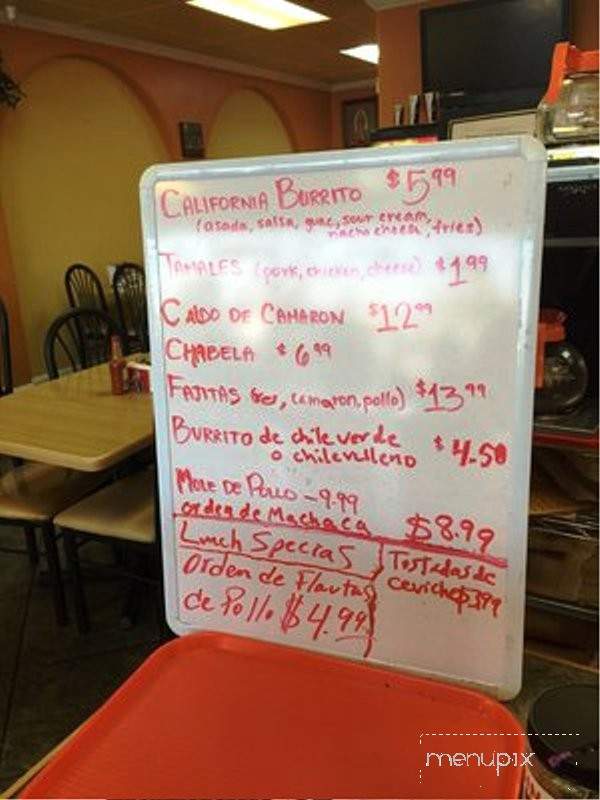 CALIFORNIA BURRITO $5.99
(asada, salsa, guac, sour cream,
nacho cheese, fries)
TAMALES (pork, chicken, cheese) $1.99
CALDO DE CAMARON $12.99
CHABELA $6.99
FAJITAS (res, camaron, pollo) $13.99
BURRITO de chile verde
o chile rulleno $4.50
MOLE DE POLLO - 9.99
orden de Machaca $8.99
Lunch Specias
Orden de Flautas
de Pollo $4.99
Tostadas de
ceviche $3.99
menupix